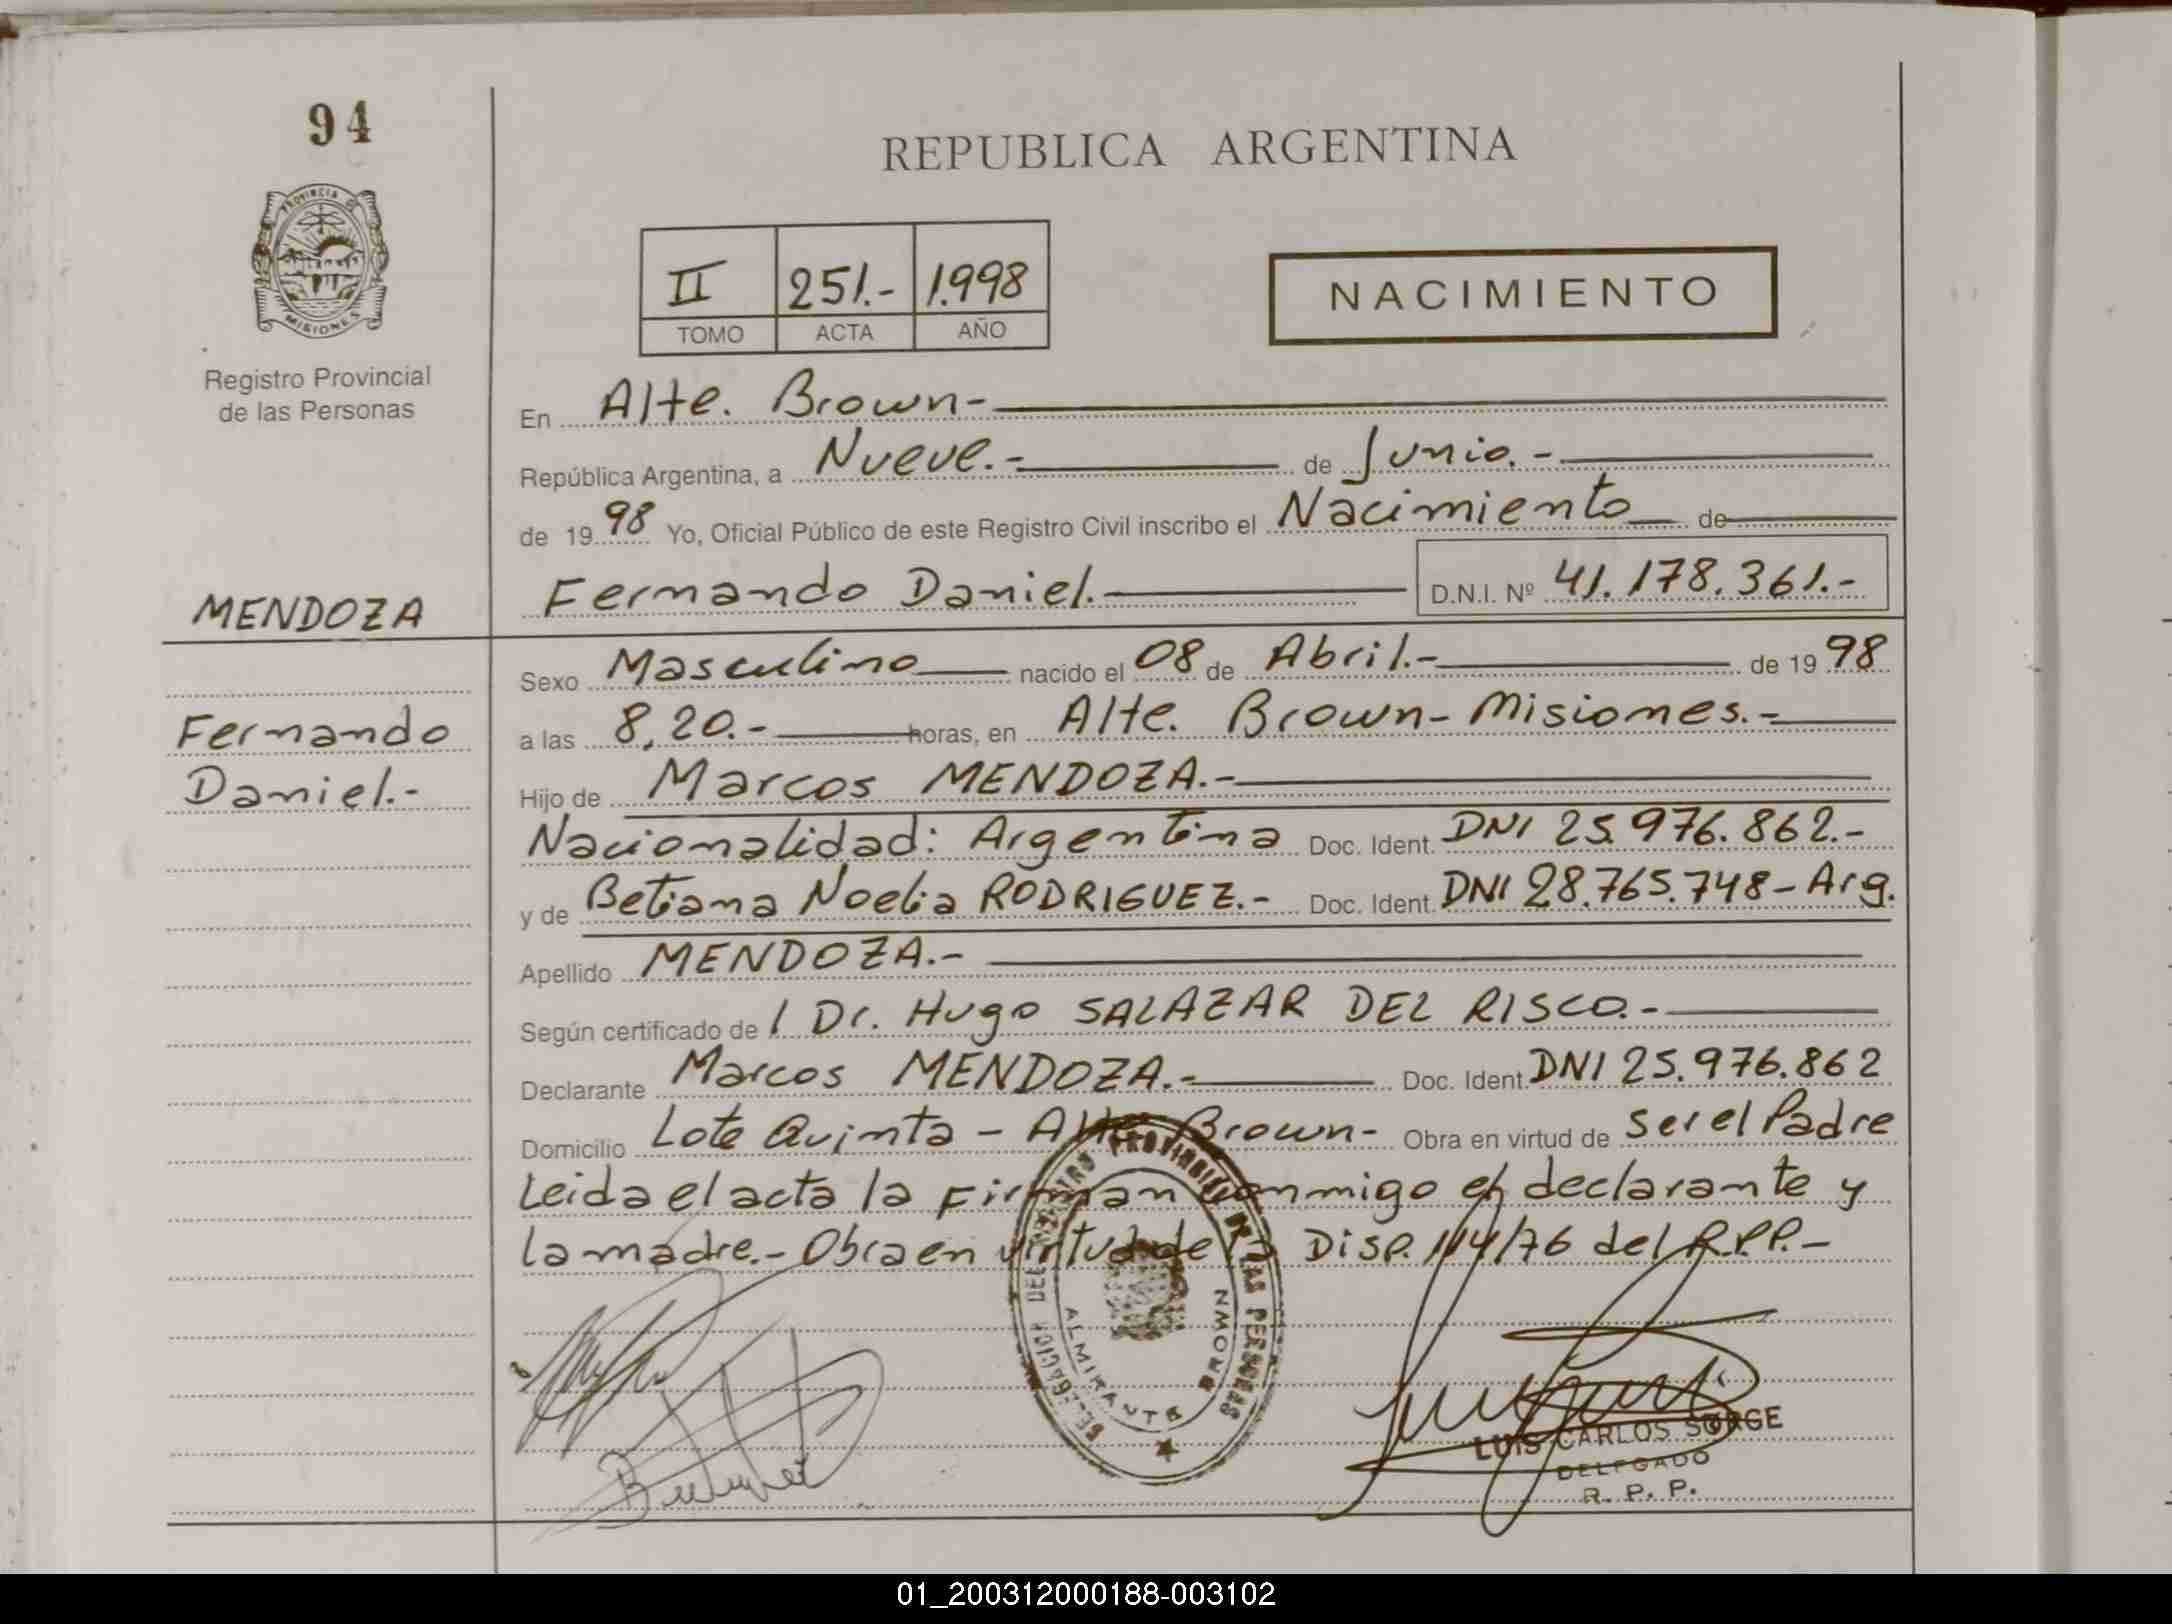 94
PROVINCIA DE
MISIONES
Registro Provincial
de las Personas
REPUBLICA ARGENTINA
II 251.- 1.998
TOMO ACTA AÑO
NACIMIENTO
En Alte. Brown-
República Argentina, a Nueve.- de Junio.-
de 19 98 Yo, Oficial Público de este Registro Civil inscribo el Nacimiento de
MENDOZA
Fernando Daniel.- D.N.I. Nº 41.178.361.-
Sexo Masculino nacido el 08 de Abril.- de 19 98
Fernando
a las 8,20.- horas, en Alte. Brown- Misiones.-
Daniel.-
Hijo de Marcos MENDOZA.-
Nacionalidad: Argentina Doc. Ident. DNI 25.976.862.-
y de Betiana Noelia RODRIGUEZ.- Doc. Ident. DNI 28.765.748- Arg.
Apellido MENDOZA.-
Según certificado de / Dr. Hugo SALAZAR DEL RISCO.-
Declarante Marcos MENDOZA.- Doc. Ident. DNI 25.976.862
Domicilio Lote Quinta - Alte Brown- Obra en virtud de ser el Padre
Leida el acta la Firman conmigo el declarante y
la madre.- Obra en virtud de la Disp. 114/76 del R.P.P.-
DEL REGISTRO PROVINCIAL DE LAS PERSONAS
ALMIRANTE BROWN
LUIS CARLOS SORGE
DELEGADO
R. P. P.
01_200312000188-003102